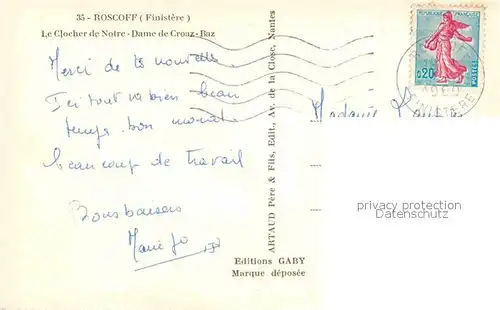 35 - ROSCOFF ( Finistère )
Le Clocher de Notre-Dame de Croaz-Baz
Merci de ta nouvelle
Ici tout va bien beau
temps bon moral
beaucoup de travail
Bons baisers
Marie Jo
ARTAUD Père & Fils, Edit., Av. de la Close, Nantes
Editions GABY
Marque déposée
REPUBLIQUE FRANÇAISE
0,20
POSTES
FINISTERE
Madame
privacy protection
Datenschutz